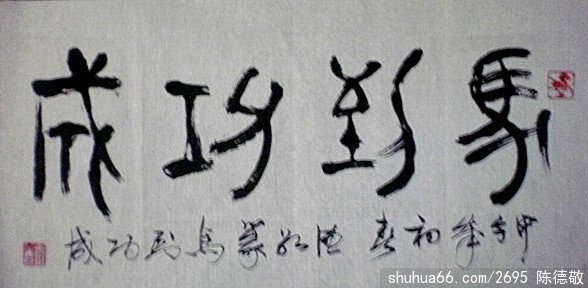 馬到功成
甲午年初春德敬篆馬到功成
shuhua66.com/2695 陈德敬